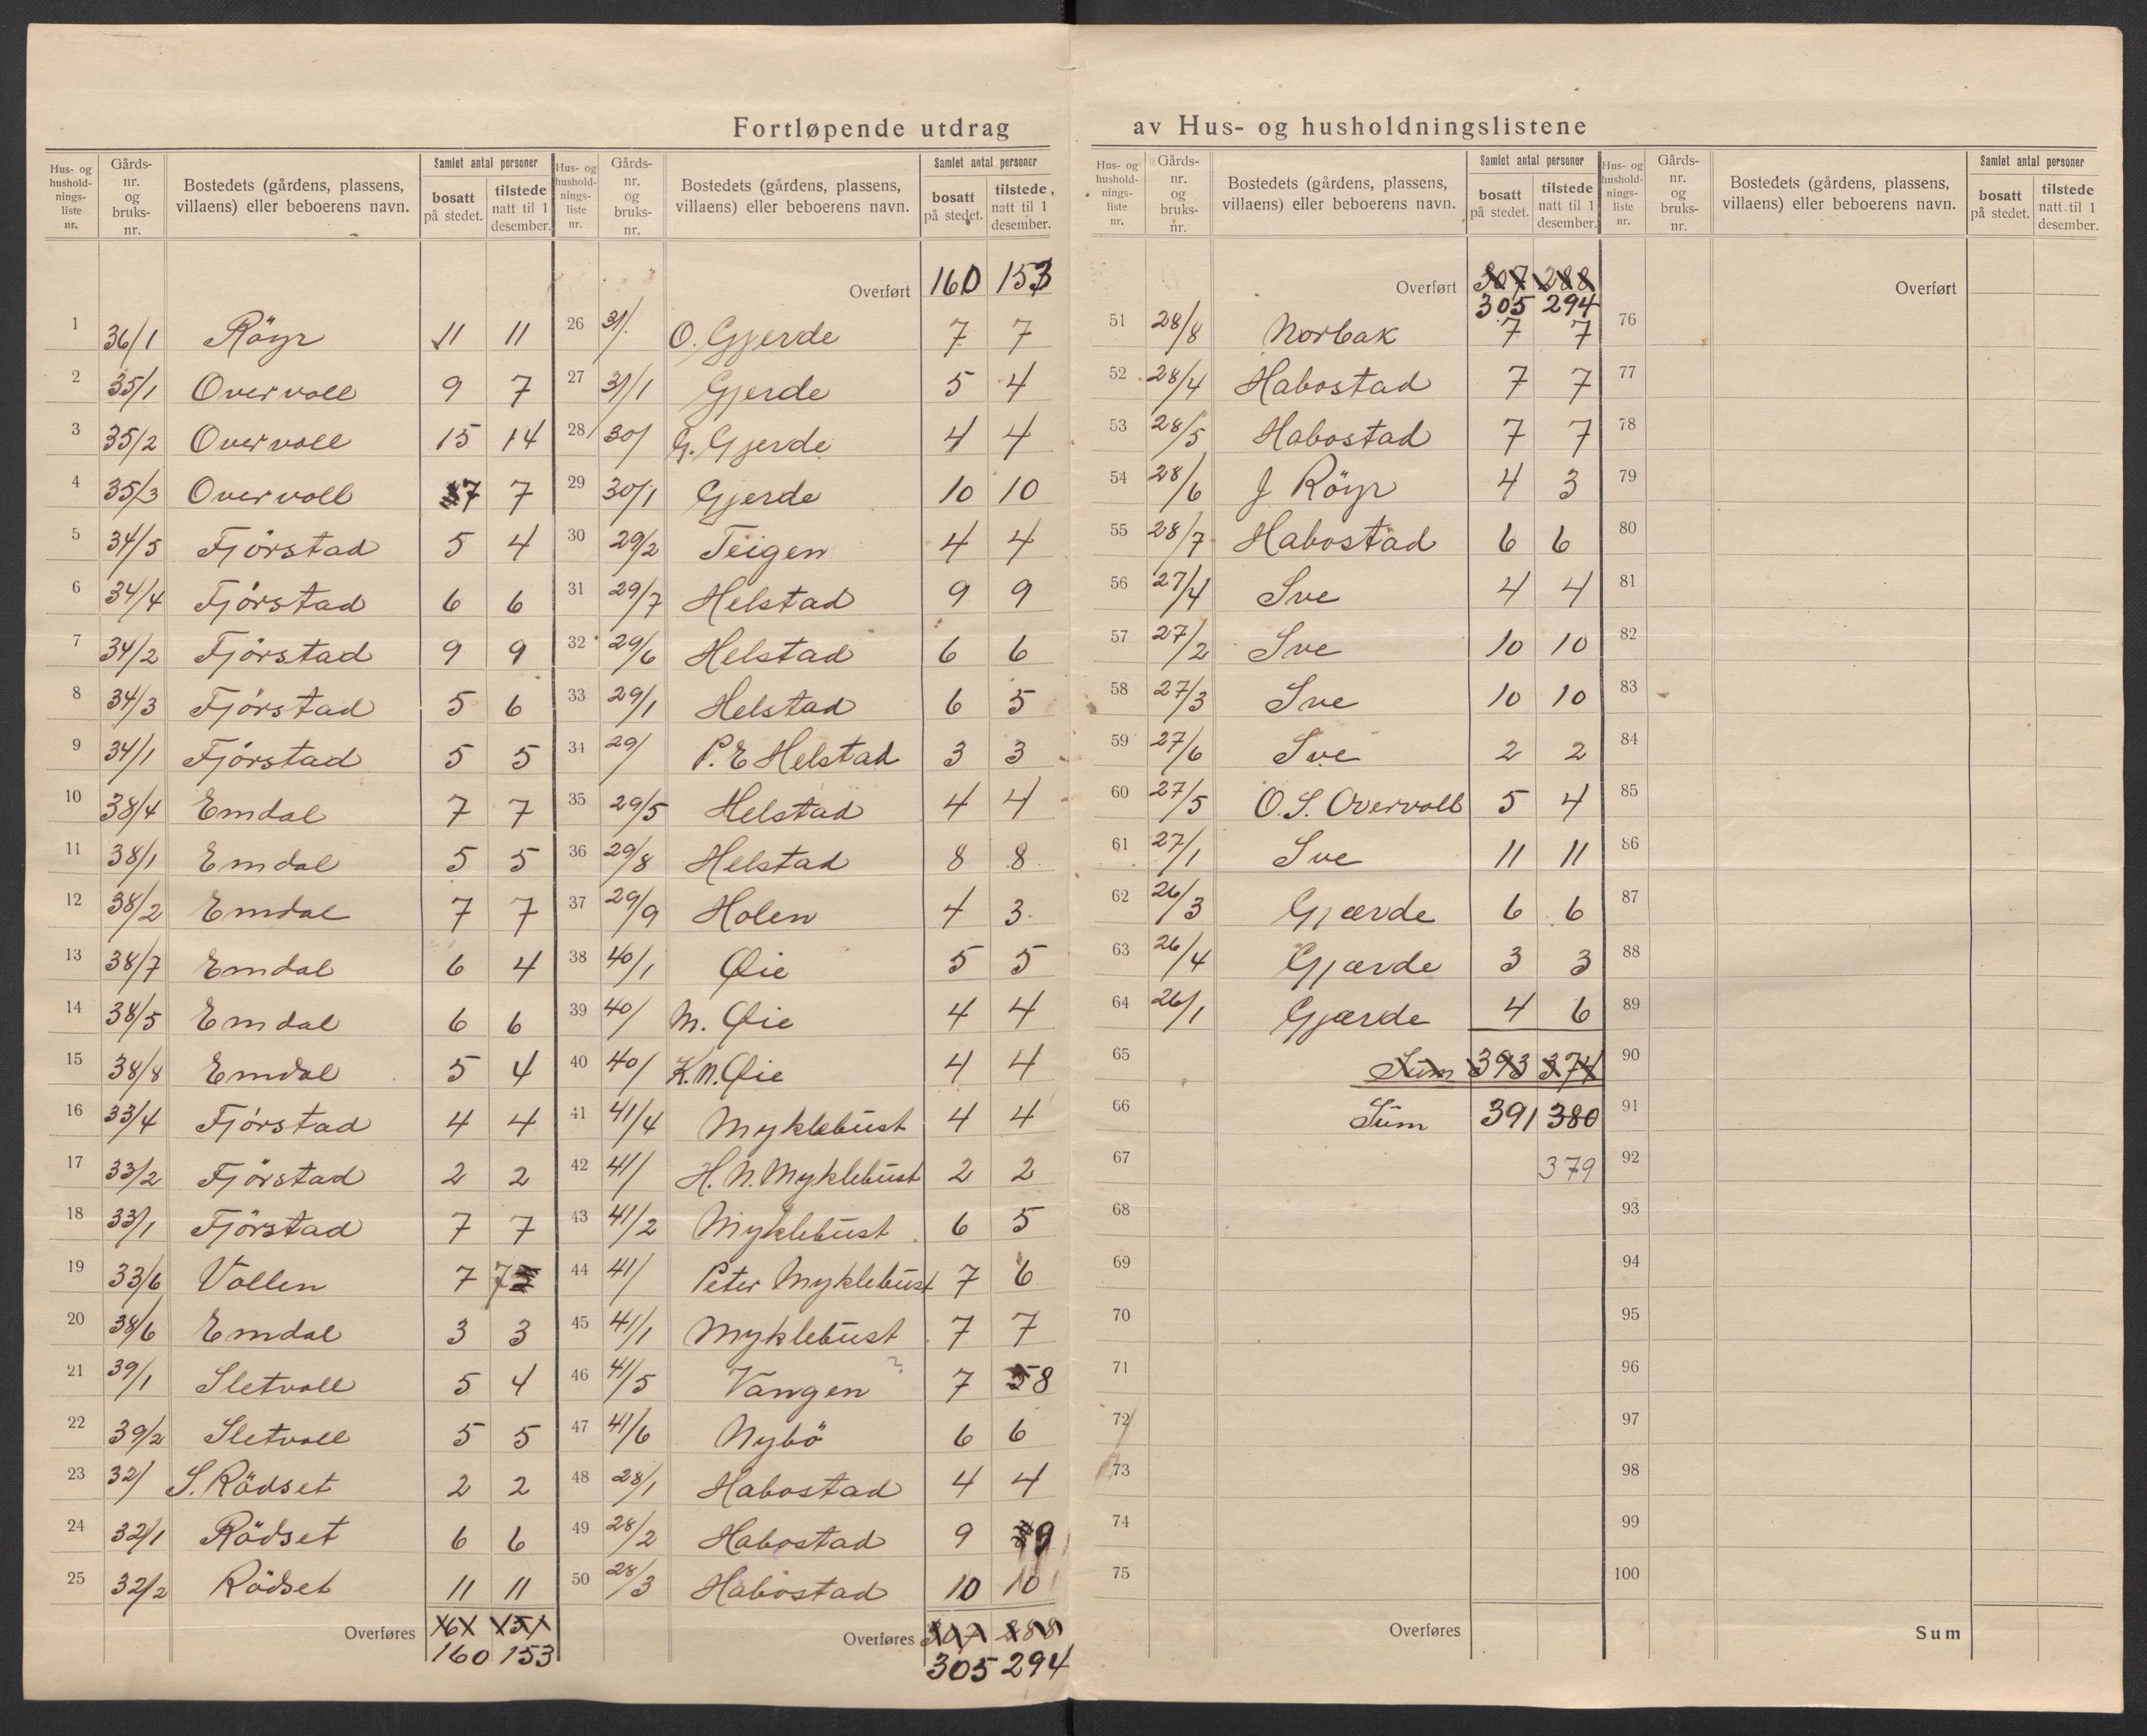 Fortløpende utdrag av Hus- og husholdningslistene
Hus- og husholdningsliste nr. | Gårds-nr. og bruks-nr. | Bostedets (gårdens, plassens, villaens) eller beboerens navn. | Samlet antal personer bosatt på stedet. | tilstede natt til 1 desember.
1 36/1 Röyr 11 11
2 35/1 Overvoll 9 7
3 35/2 Overvoll 15 14
4 35/3 Overvoll 7 7
5 34/5 Fjörstad 5 4
6 34/4 Fjörstad 6 6
7 34/2 Fjörstad 9 9
8 34/3 Fjörstad 5 6
9 34/1 Fjörstad 5 5
10 38/4 Emdal 7 7
11 38/1 Emdal 5 5
12 38/2 Emdal 7 7
13 38/7 Emdal 6 4
14 38/5 Emdal 6 6
15 38/8 Emdal 5 4
16 33/4 Fjörstad 4 4
17 33/2 Fjörstad 2 2
18 33/1 Fjörstad 7 7
19 33/6 Vollen 7 7
20 38/6 Emdal 3 3
21 39/1 Sletvoll 5 4
22 39/2 Sletvoll 5 5
23 32/ S. Rödset 2 2
24 32/1 Rödset 6 6
25 32/2 Rödset 11 11
Overføres 161 151
160 153
Hus- og husholdningsliste nr. | Gårds-nr. og bruks-nr. | Bostedets (gårdens, plassens, villaens) eller beboerens navn. | Samlet antal personer bosatt på stedet. | tilstede natt til 1 desember.
Overført 160 153
26 31/. O. Gjerde 7 7
27 31/1 Gjerde 5 4
28 30/ G. Gjerde 4 4
29 30/1 Gjerde 10 10
30 29/2 Teigen 4 4
31 29/7 Helstad 9 9
32 29/6 Helstad 6 6
33 29/1 Helstad 6 5
34 29/ P. E Helstad 3 3
35 29/5 Helstad 4 4
36 29/8 Helstad 8 8
37 29/9 Holen 4 3
38 40/1 Øie 5 5
39 40/ N. Øie 4 4
40 40/ K. N. Øie 4 4
41 41/4 Myklebust 4 4
42 41/ H. N. Myklebust 2 2
43 41/2 Myklebust 6 5
44 41/ Peter Myklebust 7 6
45 41/1 Myklebust 7 7
46 41/5 Vangen ? 7 8
47 41/6 Nybö 6 6
48 28/1 Habostad 4 4
49 28/2 Habostad 9 9
50 28/3 Habostad 10 10
Overføres 307 288
305 294
Hus- og husholdningsliste nr. | Gårds-nr. og bruks-nr. | Bostedets (gårdens, plassens, villaens) eller beboerens navn. | Samlet antal personer bosatt på stedet. | tilstede natt til 1 desember.
Overført 307 288
305 294
51 28/8 Norbak 7 7
52 28/4 Habostad 7 7
53 28/5 Habostad 7 7
54 28/6 J Röyr 4 3
55 28/7 Habostad 6 6
56 27/4 Sve 4 4
57 27/2 Sve 10 10
58 27/3 Sve 10 10
59 27/6 Sve 2 2
60 27/5 O. S. Overvoll 5 4
61 27/1 Sve 11 11
62 26/3 Gjærde 6 6
63 26/4 Gjærde 3 3
64 26/1 Gjærde 4 6
65 Sum 393 374
66 Sum 391 380
67 379
68
69
70
71
72
73
74
75
Overføres
Hus- og husholdningsliste nr. | Gårds-nr. og bruks-nr. | Bostedets (gårdens, plassens, villaens) eller beboerens navn. | Samlet antal personer bosatt på stedet. | tilstede natt til 1 desember.
Overført
76
77
78
79
80
81
82
83
84
85
86
87
88
89
90
91
92
93
94
95
96
97
98
99
100
Sum